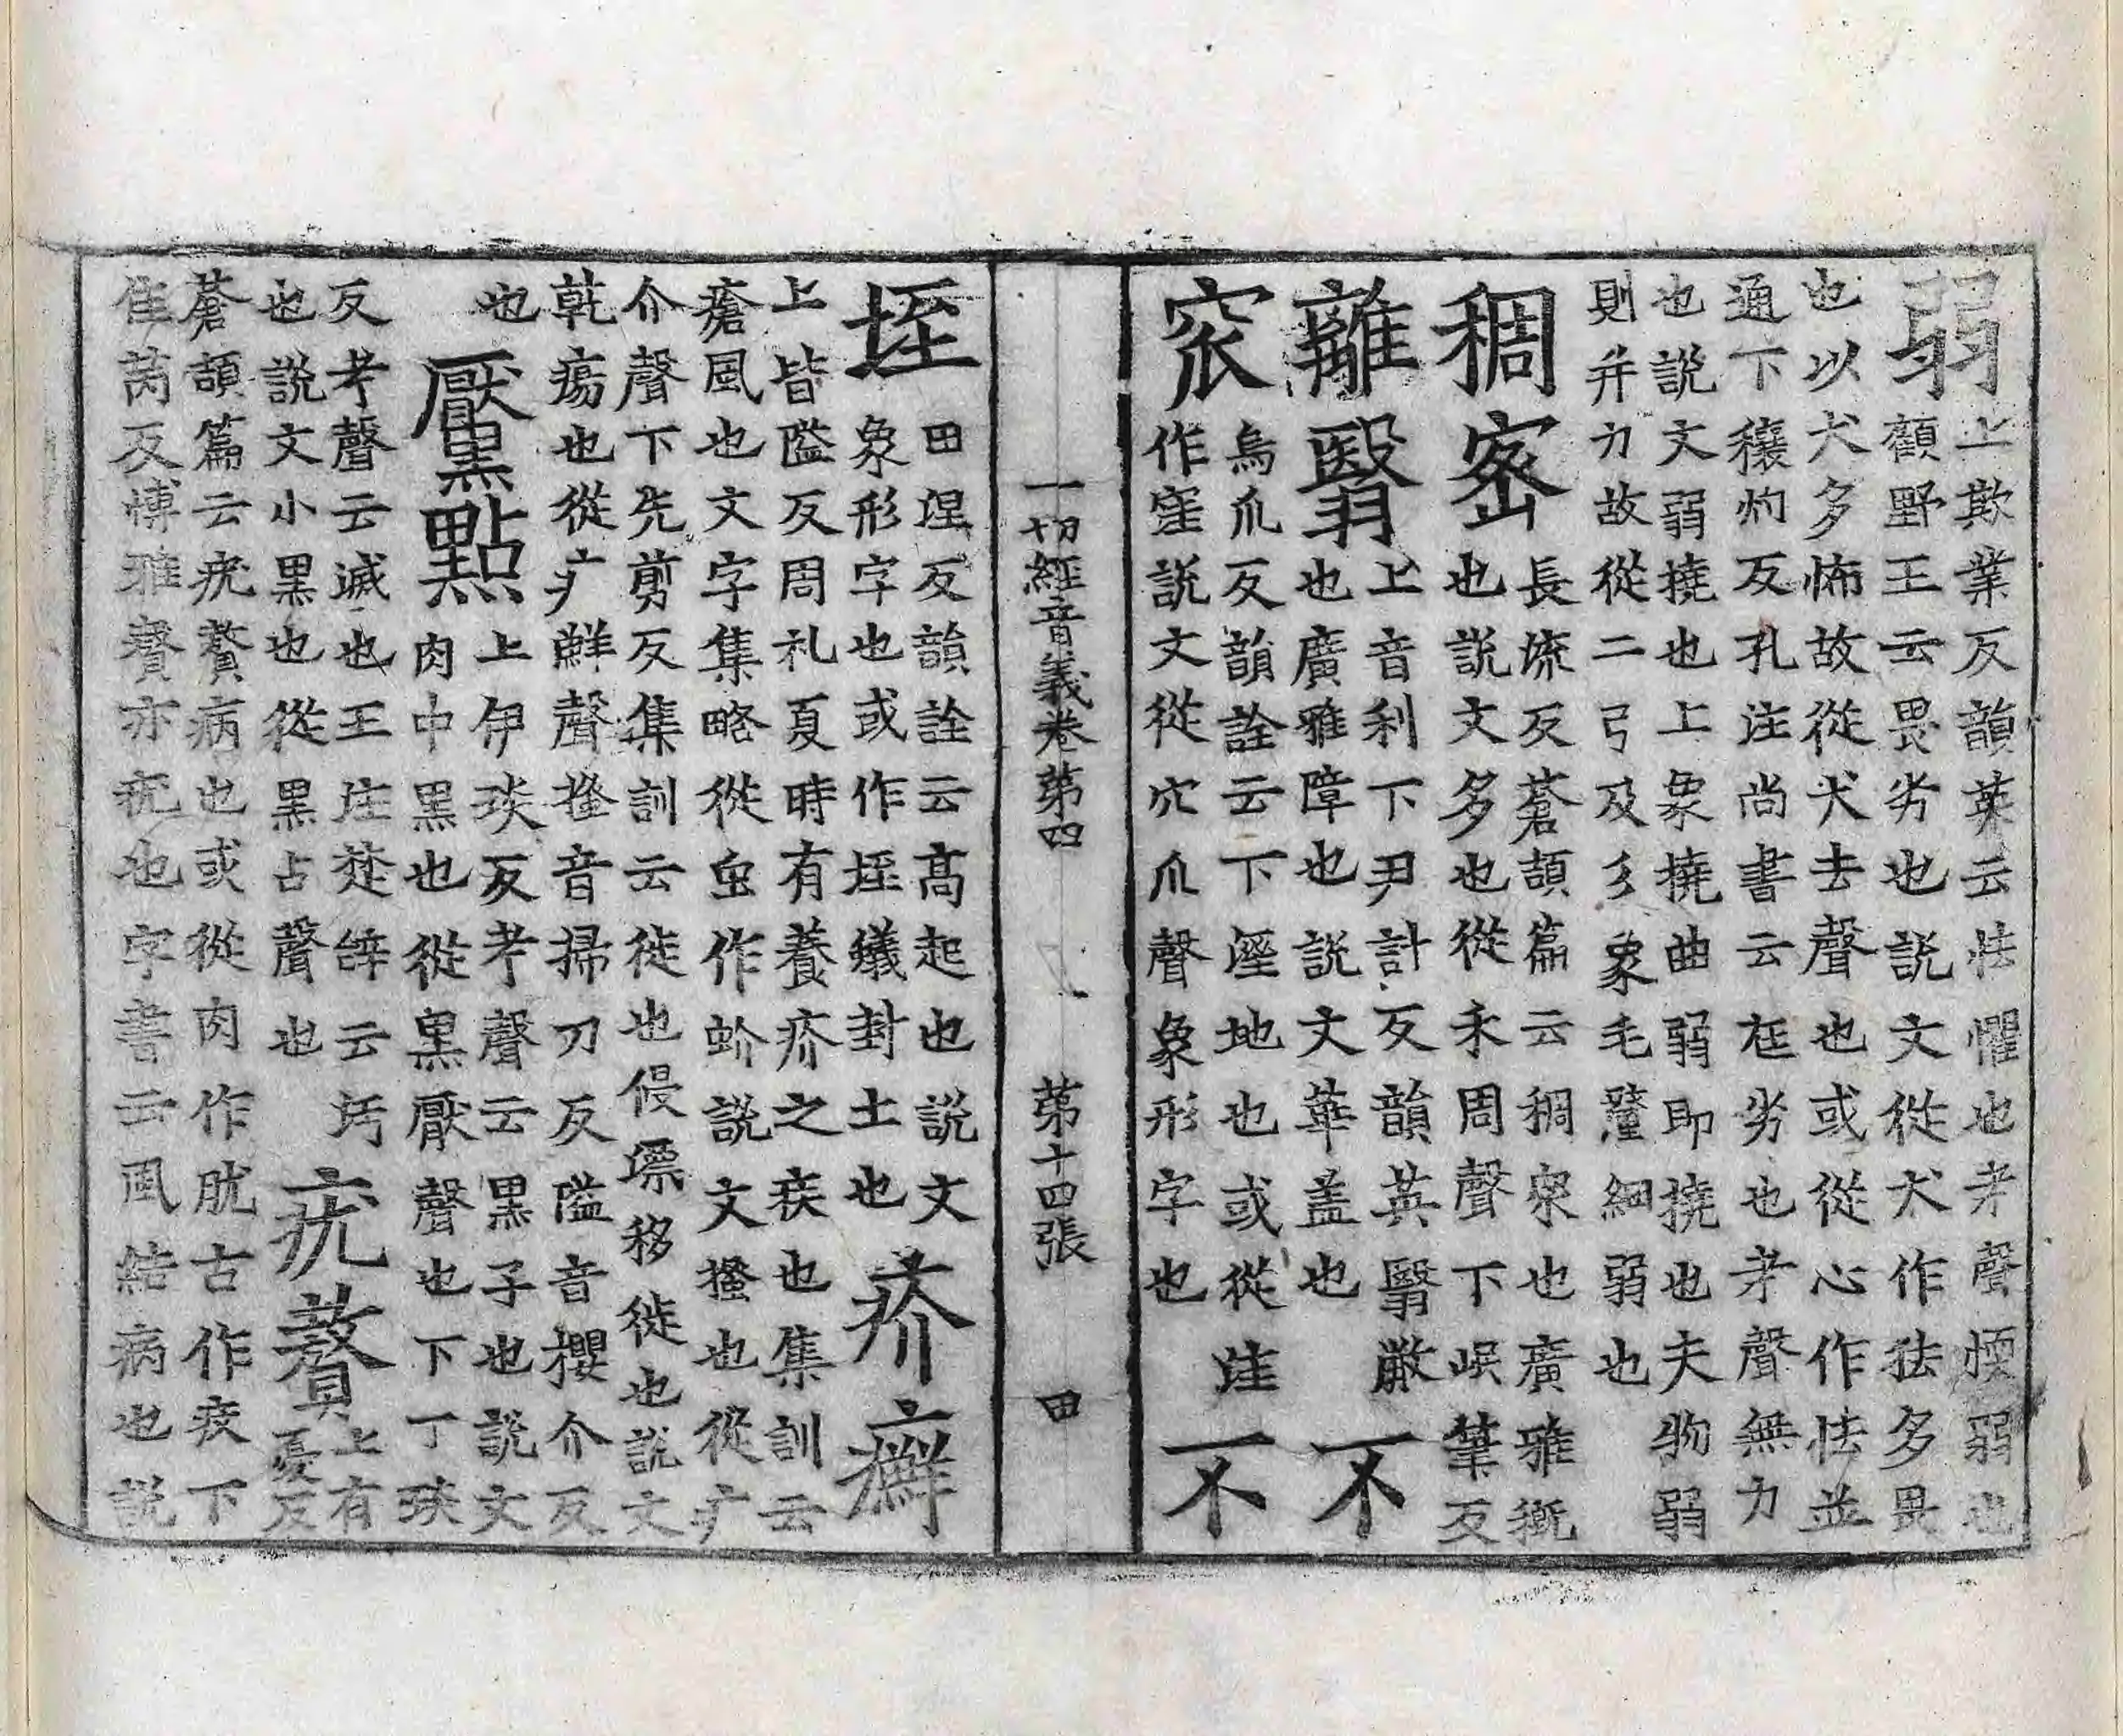 弱上欺業反韻英云怯懼也考聲愞弱也
顧野王云畏劣也說文從犬作㹤多畏
也以犬多怖故從犬去聲也或從心作怯並
通下穰灼反孔注尚書云尫劣也考聲無力
也說文弱撓也上象撓曲弱即撓也夫物弱
則并力故從二弓及彡象毛氂細弱也
稠密長流反蒼頡篇云稠衆也廣雅穊
也說文多也從禾周聲下岷筆反
離翳上音利下尹計反韻英翳蔽
也廣雅障也說文華盖也不
窊烏瓜反韻詮云下溼地也或從洼
作窪說文從穴瓜聲象形字也不
一切經音義卷第四 第十四張 田
垤田涅反韻詮云高起也說文
象形字也或作垤蟻封土也疥癬
上皆隘反周礼夏時有養疥之疾也集訓云
瘡風也文字集略從虫作蚧說文搔也從疒
介聲下先剪反集訓云徙也侵移徙也說文
乾瘍也從疒鮮聲搔音掃刀反隘音櫻介反
也黶點上伊琰反考聲云黑子也說文
肉中黑也從黑厭聲也下丁琰
反考聲云滅也王注楚辝云圬
也說文小黑也從黑占聲也疣贅上有憂反
蒼頡篇云疣贅病也或從肉作肬古作疾下
隹芮反博雅贅亦疣也字書云風結病也說